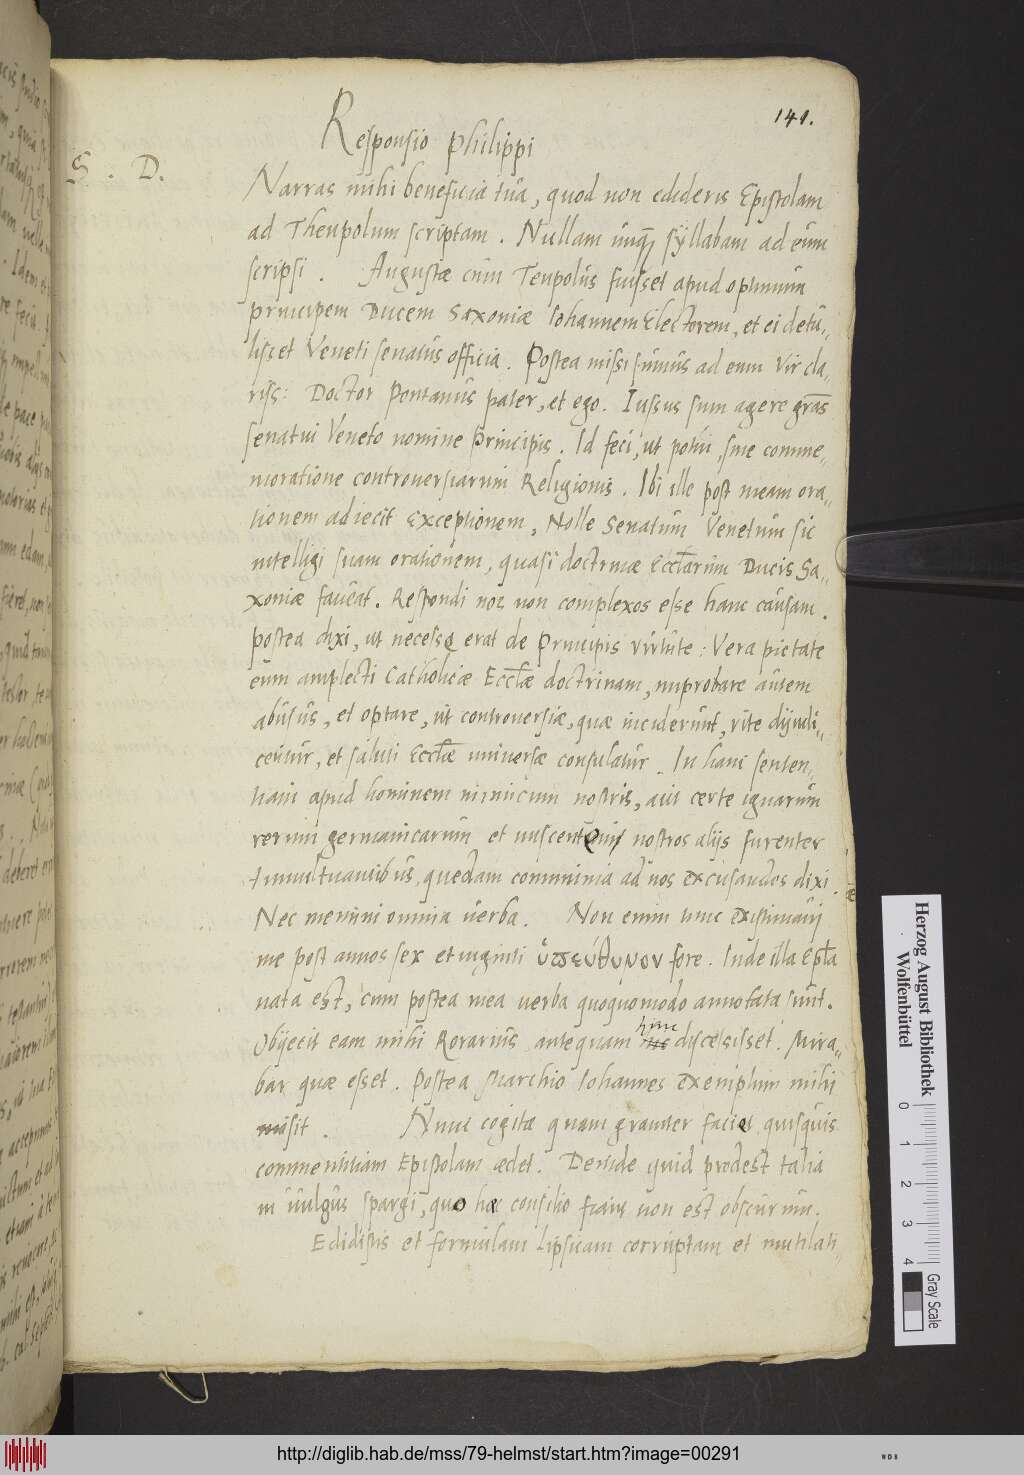 141.
Responsio Philippi
S. D.
Narras mihi beneficia tua, quod non edideris Epistolam
ad Theupolum scriptam. Nullam unq̃ syllabam ad eum
scripsi. Augustæ cum Teupolus fuisset apud optimum
principem Ducem Saxoniæ Iohannem Electorem, et ei detu„
lisset Veneti senatus officia. Postea missi sumus ad eum Vir cla„
riss: Doctor Pontanus pater, et ego. Iussus sum agere gr̃as
senatui Veneto nomine Principis. Id feci, ut potui, sine comme„
moratione controversiarum Religionis. Ibi ille post meam ora„
tionem adiecit Exceptionem, Nolle Senatum Venetum sic
intelligi suam orationem, quasi doctrinæ Eccl̃arum Ducis Sa„
xoniæ faueat. Respondi nos non complexos esse hanc causam.
postea dixi, ut necesse erat de Principis virtute: Vera pietate
eum amplecti Catholicæ Eccl̃æ doctrinam, improbare autem
abusus, et optare, ut controuersiæ, quæ inciderunt, rite dijudi„
centur, et saluti Eccl̃æ universæ consulatur. In hanc senten„
tiam apud hominem inimicum nostris, aut certe ignarum
rerum germanicarum et nostros alijs furenter
tumultuantibus, quædam communia ad nos excusandos dixi.
Nec memini omnia uerba. Non enim tunc existimauj
me post annos sex et uiginti ὑπεύθυνον fore. Inde illa Ep̃la
nata est, cum postea mea uerba quoquomodo annotata sunt.
Obijecit eam mihi Rorarius antequam hinc discessisset. Mira„
bar quæ esset. Postea Marchio Iohannes exemplum mihi
misit. Nunc cogita quam grauiter faciet, quisquis
commentitiam Epistolam ædet. Deinde quid prodest talia
in uulgus spargi, quo hæc consilio fiant non est obscurum.
Edidistis et formulam Lipsicam corruptam et mutilati„
Herzog August Bibliothek
Wolfenbüttel
0 1 2 3 4
Gray Scale
http://diglib.hab.de/mss/79-helmst/start.htm?image=00291
WDB